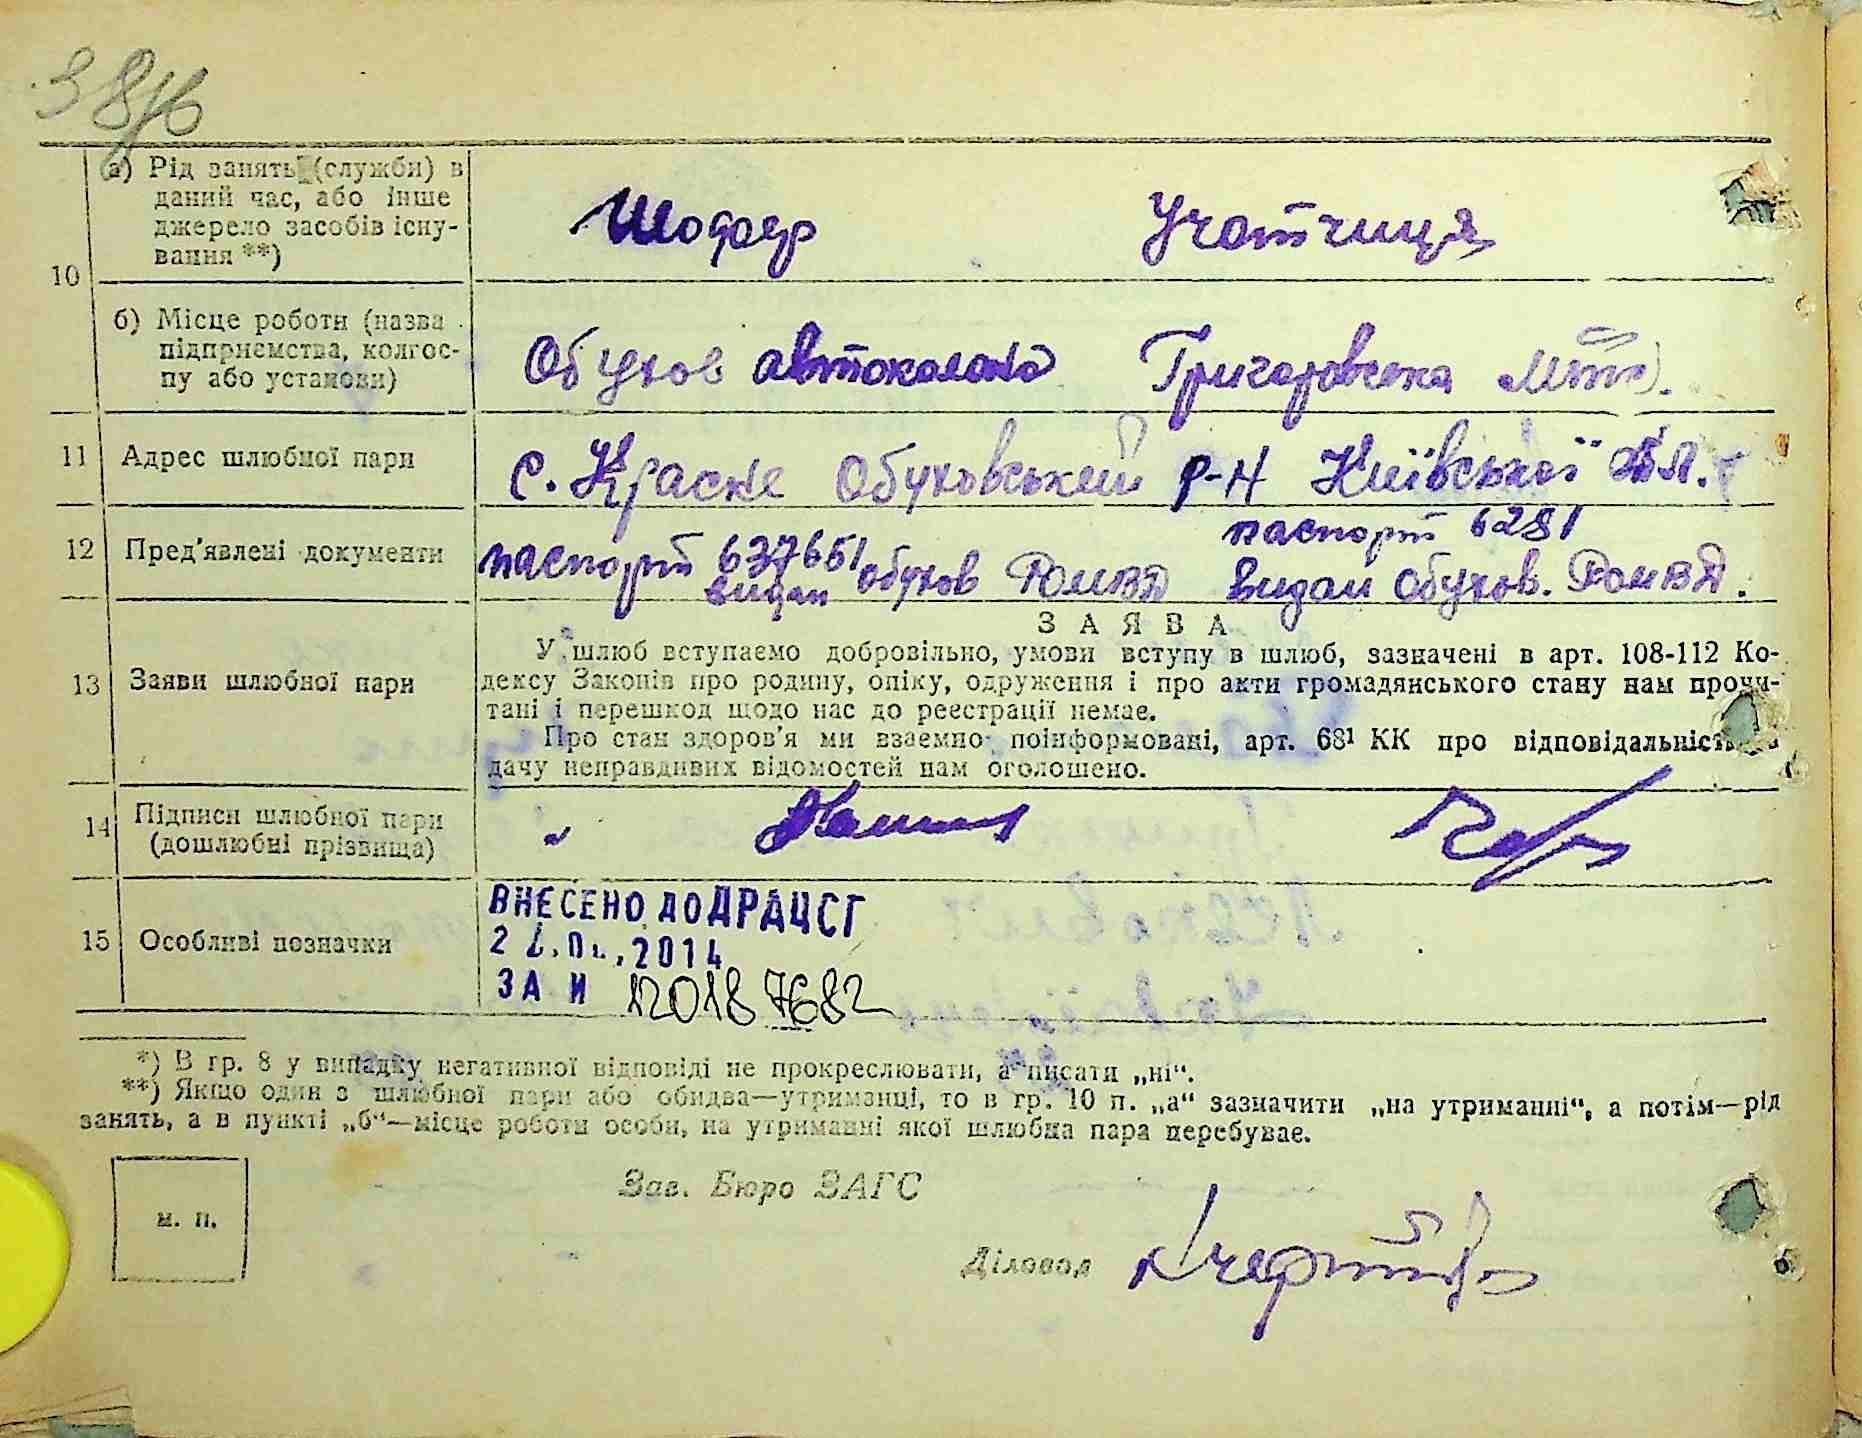 а) Рід занять (служби) в
даний час, або інше
джерело засобів існу-
вання **)
Шофер Учотчиця
10
б) Місце роботи (назва
підприємства, колгос-
пу або установи)
Обухов автоколона Григоровська МТС.
11 Адрес шлюбної пари
с. Красне Обуховський р-н Київської обл.
12 Пред'явлені документи
паспорт 637651 видан Обухов РОМВД
паспорт 6281
видан Обухов. РОМВД.
ЗАЯВА
13 Заяви шлюбної пари
У шлюб вступаємо добровільно, умови вступу в шлюб, зазначені в арт. 108-112 Ко-
дексу Законів про родину, опіку, одруження і про акти громадянського стану нам прочи-
тані і перешкод щодо нас до реєстрації немає.
Про стан здоров'я ми взаємно поінформовані, арт. 68¹ КК про відповідальність
дачу неправдивих відомостей нам оголошено.
14 Підписи шлюбної пари
(дошлюбні прізвища)
15 Особливі позначки
ВНЕСЕНО ДО ДРАЦСГ
2014
ЗА И 12018 7682
*) В гр. 8 у випадку негативної відповіді не прокреслювати, а писати „ні“.
**) Якщо один з шлюбної пари або обидва—утриманці, то в гр. 10 п. „а“ зазначити „на утриманні“, а потім—рід
занять, а в пункті „б“—місце роботи особи, на утриманні якої шлюбна пара перебуває.
м. п.
Зав. Бюро ЗАГС
Діловод